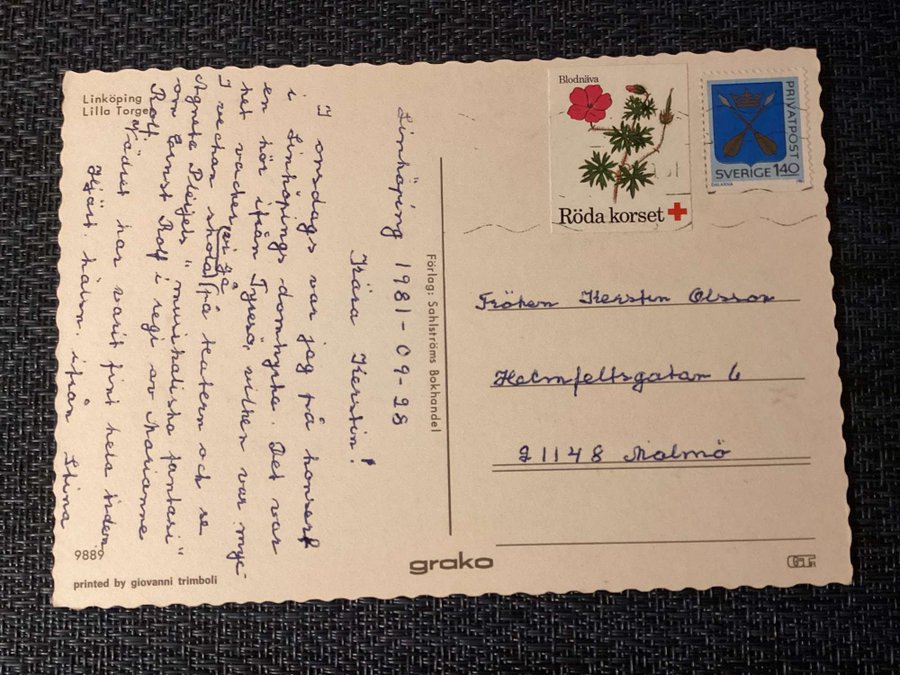 Linköping
Lilla Torget
Linköping 1981-09-28
Kära Kerstin!
I onsdags var jag på konsert
i Linköpings domkyrka. Det var
en kör ifrån Tyresö, vilken var myc-
ket vacker.
I veckan ska vi gå (på teatern och se
Agneta Pleijels "musikaliska fantasi"
om Ernst Rolf i regi av Marianne
Rolf. Vädret har varit fint hela tiden.
Hjärt. hälsn. ifrån Stina
9889
printed by giovanni trimboli
Förlag: Sahlströms Bokhandel
grako
Blodnäva
Röda korset
PRIVATPOST
SVERIGE 140
DALARNA
Fröken Kerstin Olsson
Holmfeltsgatan 6
21148 Malmö